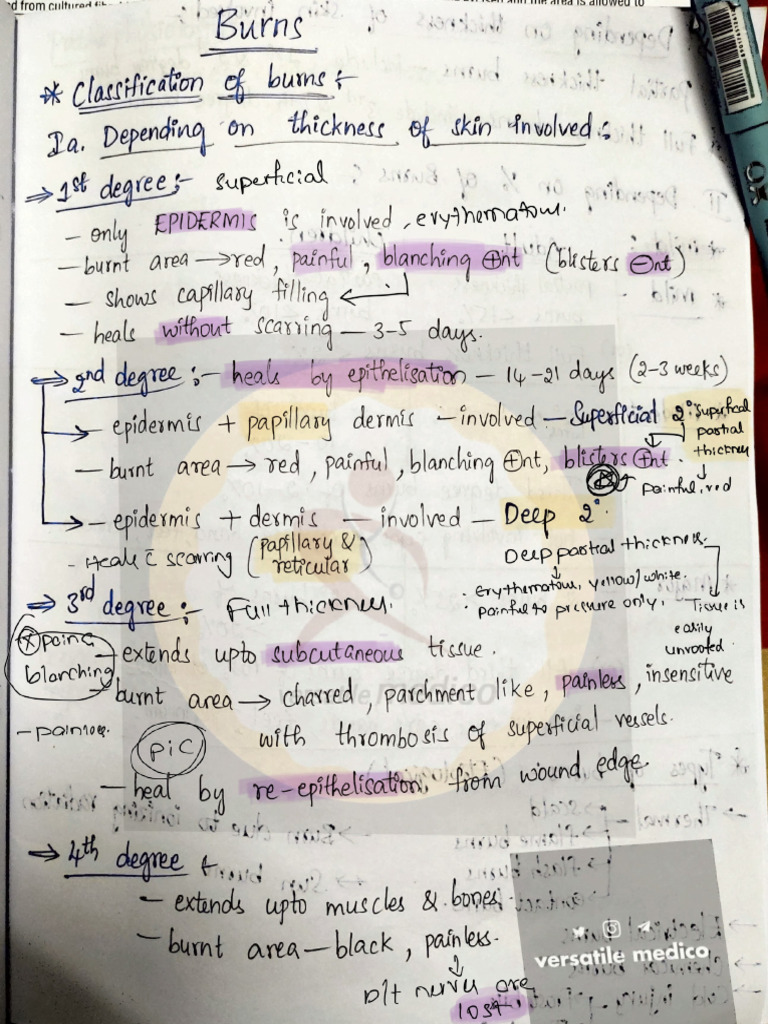 Burns
* Classification of burns :-
Ia. Depending on thickness of skin involved :
⇒ 1st degree :- Superficial
- only EPIDERMIS is involved, erythematous.
- burnt area → red, painful, blanching ⊕nt (blisters ⊖nt)
- shows capillary filling ←
- heals without scarring - 3-5 days.
⇒ 2nd degree :- heals by epithelisation - 14-21 days (2-3 weeks)
→ epidermis + papillary dermis - involved - Superficial 2°
superficial partial thickness
- burnt area → red, painful, blanching ⊕nt, blisters ⊕nt.
Painful, red
→ - epidermis + dermis - involved - Deep 2°.
(papillary & reticular)
- Heals c̄ scarring
Deep partial thickness
: erythematous, yellow/white.
: Painful to pressure only.
Tissue is easily
⇒ 3rd degree :- Full thickness.
blanching
- extends upto subcutaneous tissue.
burnt area → charred, parchment like, painless, insensitive
with thrombosis of superficial vessels.
- painless.
PIC
- heal by re-epithelisation from wound edge
⇒ 4th degree :-
- extends upto muscles & bones.
- burnt area - black, painless.
↓
D/t nerves are lost
versatile medico